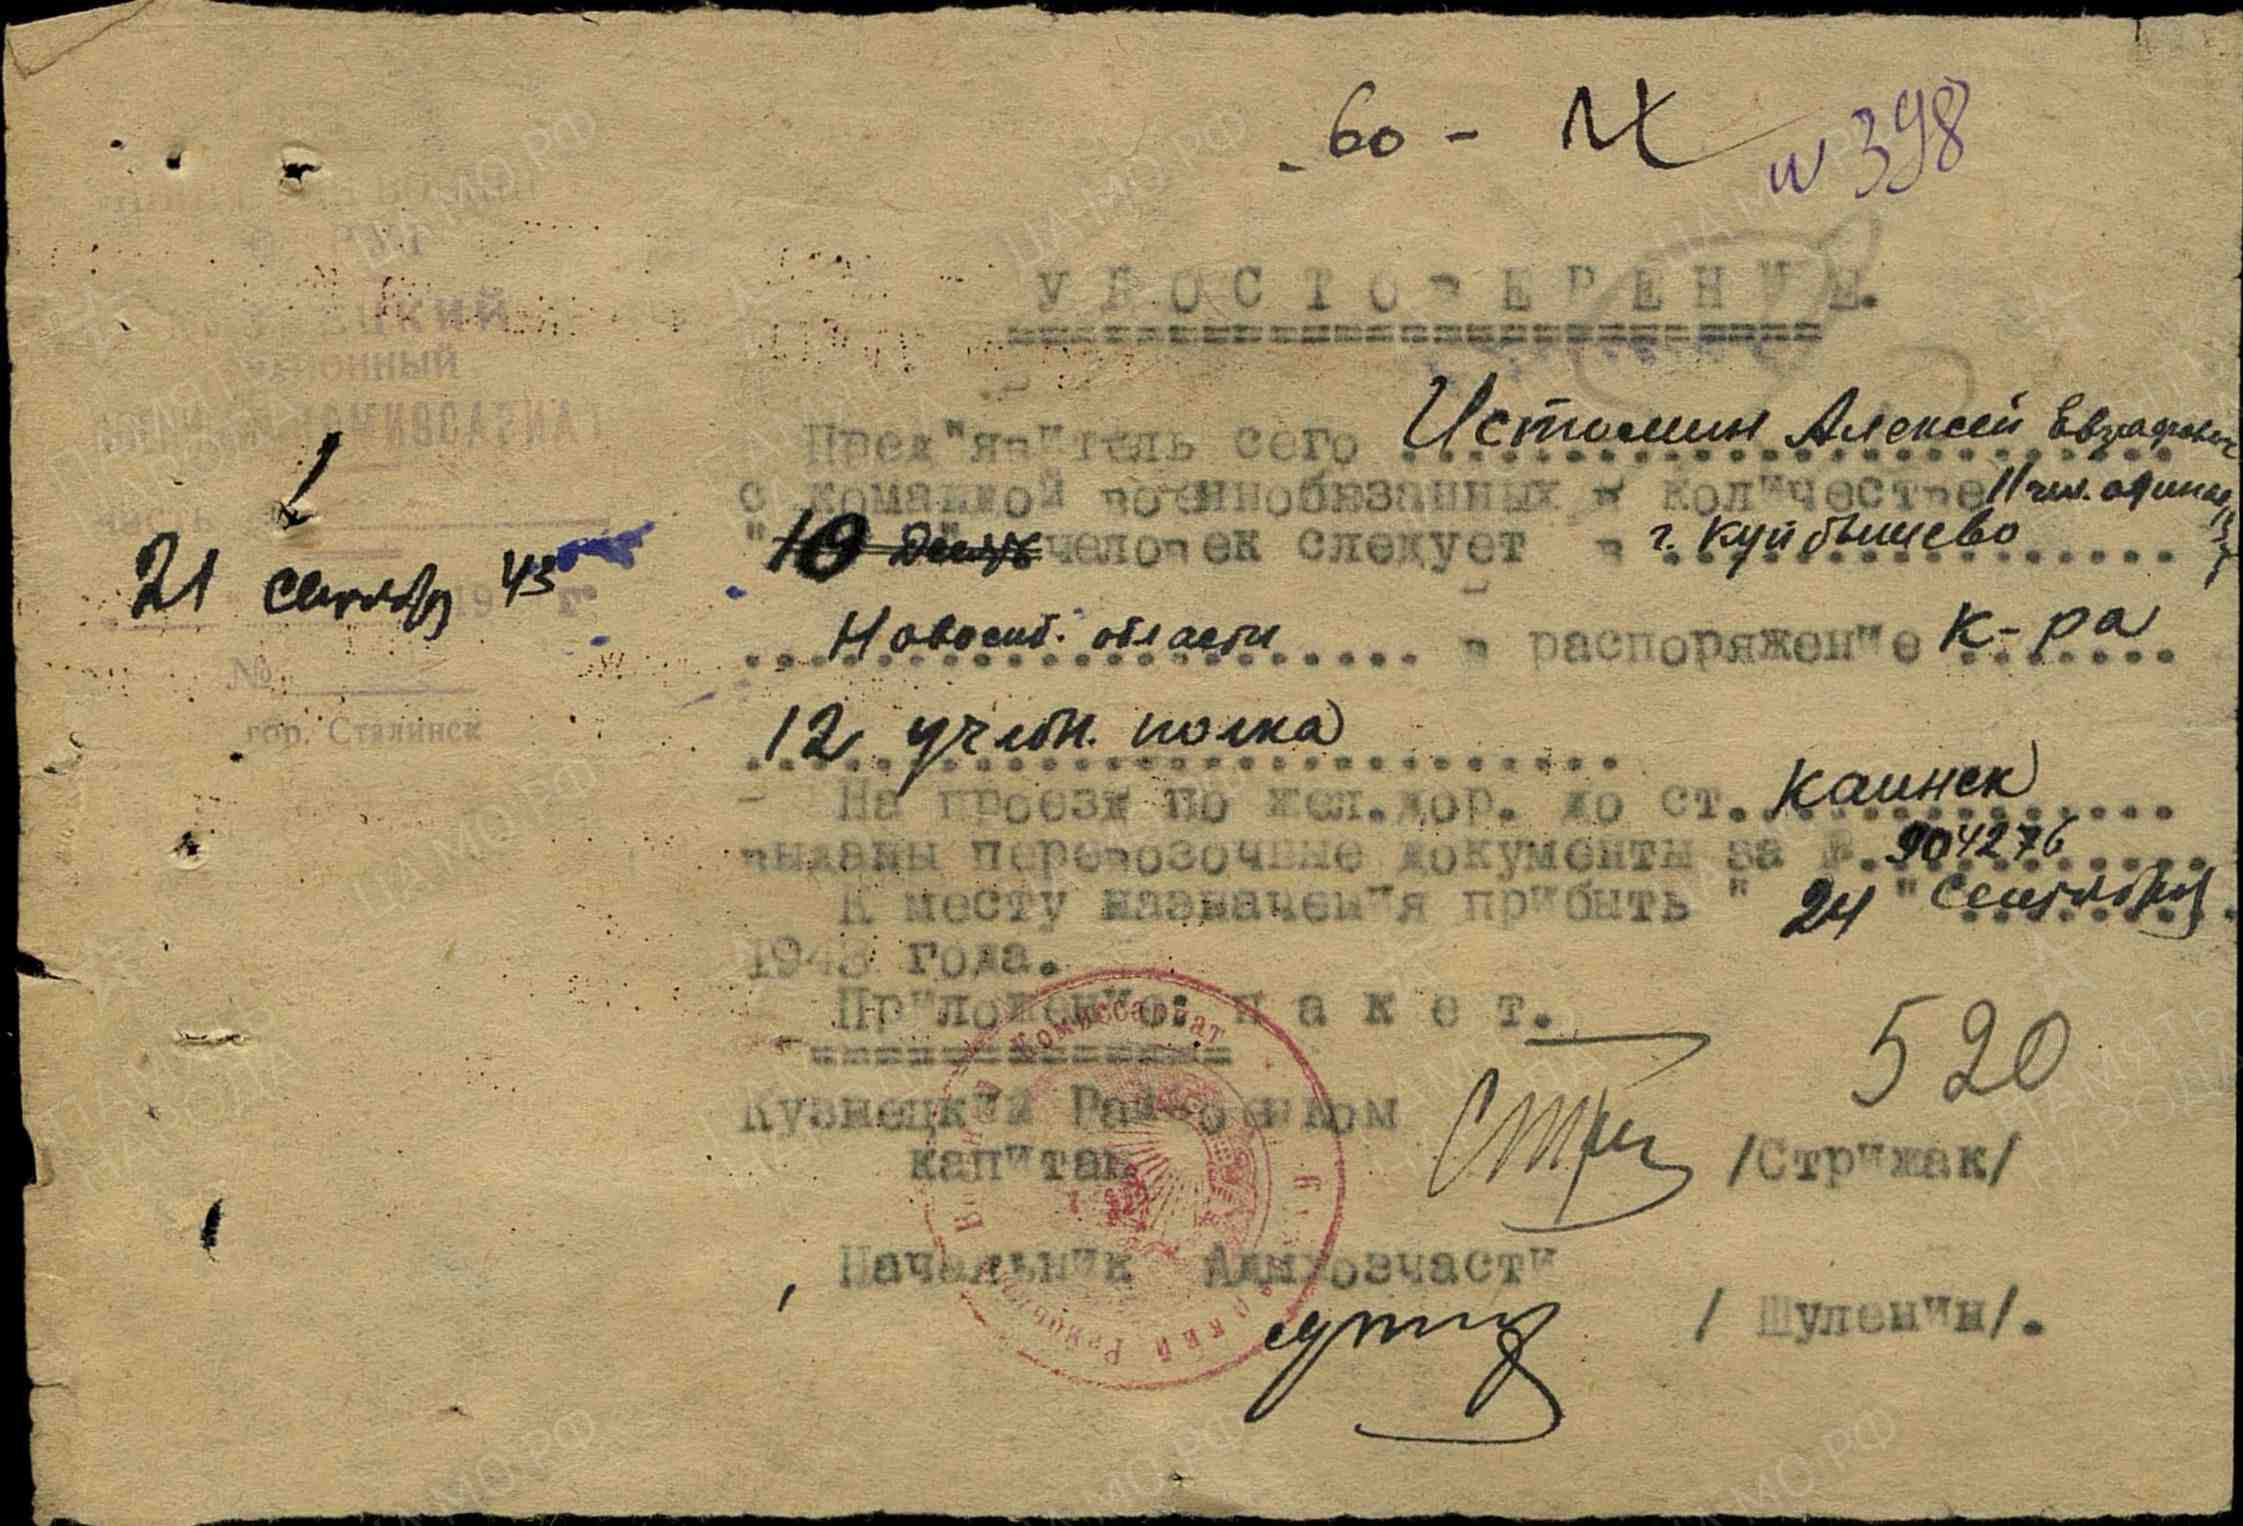 60 -
№ 398
УДОСТОВЕРЕНИЕ.
РАЙОННЫЙ
21 сентября 43
19 г.
№
гор. Сталинск
Пред"явитель сего Истомин Алексей Евграфович
с командой военнобязанных в количестве 11 чел.
" 10 " человек следует в г. Куйбышево
Новосиб. области в распоряжение к-ра
12 учебн. полка
На проезд по жел.дор. до ст. Каинск
выданы перевозочные документы за № 904276
К месту назначения прибыть " 24 " сентября
1943 года.
Приложение: п а к е т.
520
Кузнецкий Райвоенком
капитан /Стрижак/
Начальник Админчасти
/ Шуленин/.
Комиссариат